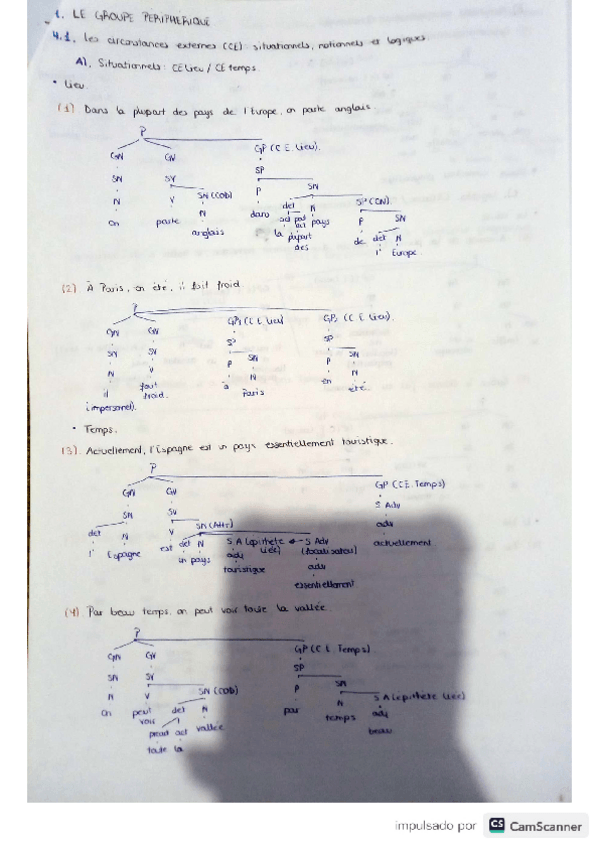 1. LE GROUPE PERIPHERIQUE
4.1. Les circonstances externes (CE): situationnels, notionnels et logiques.
A). Situationnels: CE Lieu / CE temps.
• Lieu.
(1) Dans la plupart des pays de l'Europe, on parle anglais.
P
GN GV GP (C E Lieu).
SN SV SP
SN (COD) P SN
N V N dans det N SP (CN).
on parle anglais la plupart des pays P SN
de det N
l' Europe
(2) À Paris, en été, il fait froid
P
GN GV GP1 (C E Lieu) GP2 (C E Lieu).
SN SV SP SP
P SN P SN
N V N N
il fait froid. à Paris en été.
(impersonel).
• Temps.
(3). Actuellement, l'Espagne est un pays essentiellement touristique.
P
GN GV GP (CCE. Temps)
SN SV S Adv
det N V SN (Attr) adv
l' Espagne est det N S A (épithète liée) S Adv actuellement
un pays adj adv
touristique essentiellement
(4). Par beau temps, on peut voir toute la vallée.
P
GN GV GP (C E. Temps).
SN SV SP
N V SN (COD) P SN
on peut voir det N par N S A (épithète liée)
vallée temps adj
toute la beau
impulsado por CS CamScanner